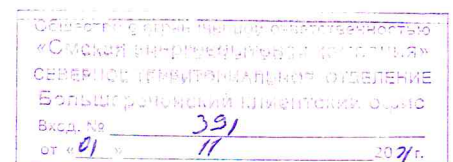 Общество с ограниченной ответственностью
«Омская энергосбытовая компания»
СЕВЕРНОЕ ТЕРРИТОРИАЛЬНОЕ ОТДЕЛЕНИЕ
Большереченский клиентский офис
Вход. № 391
от «01» 11 2021 г.